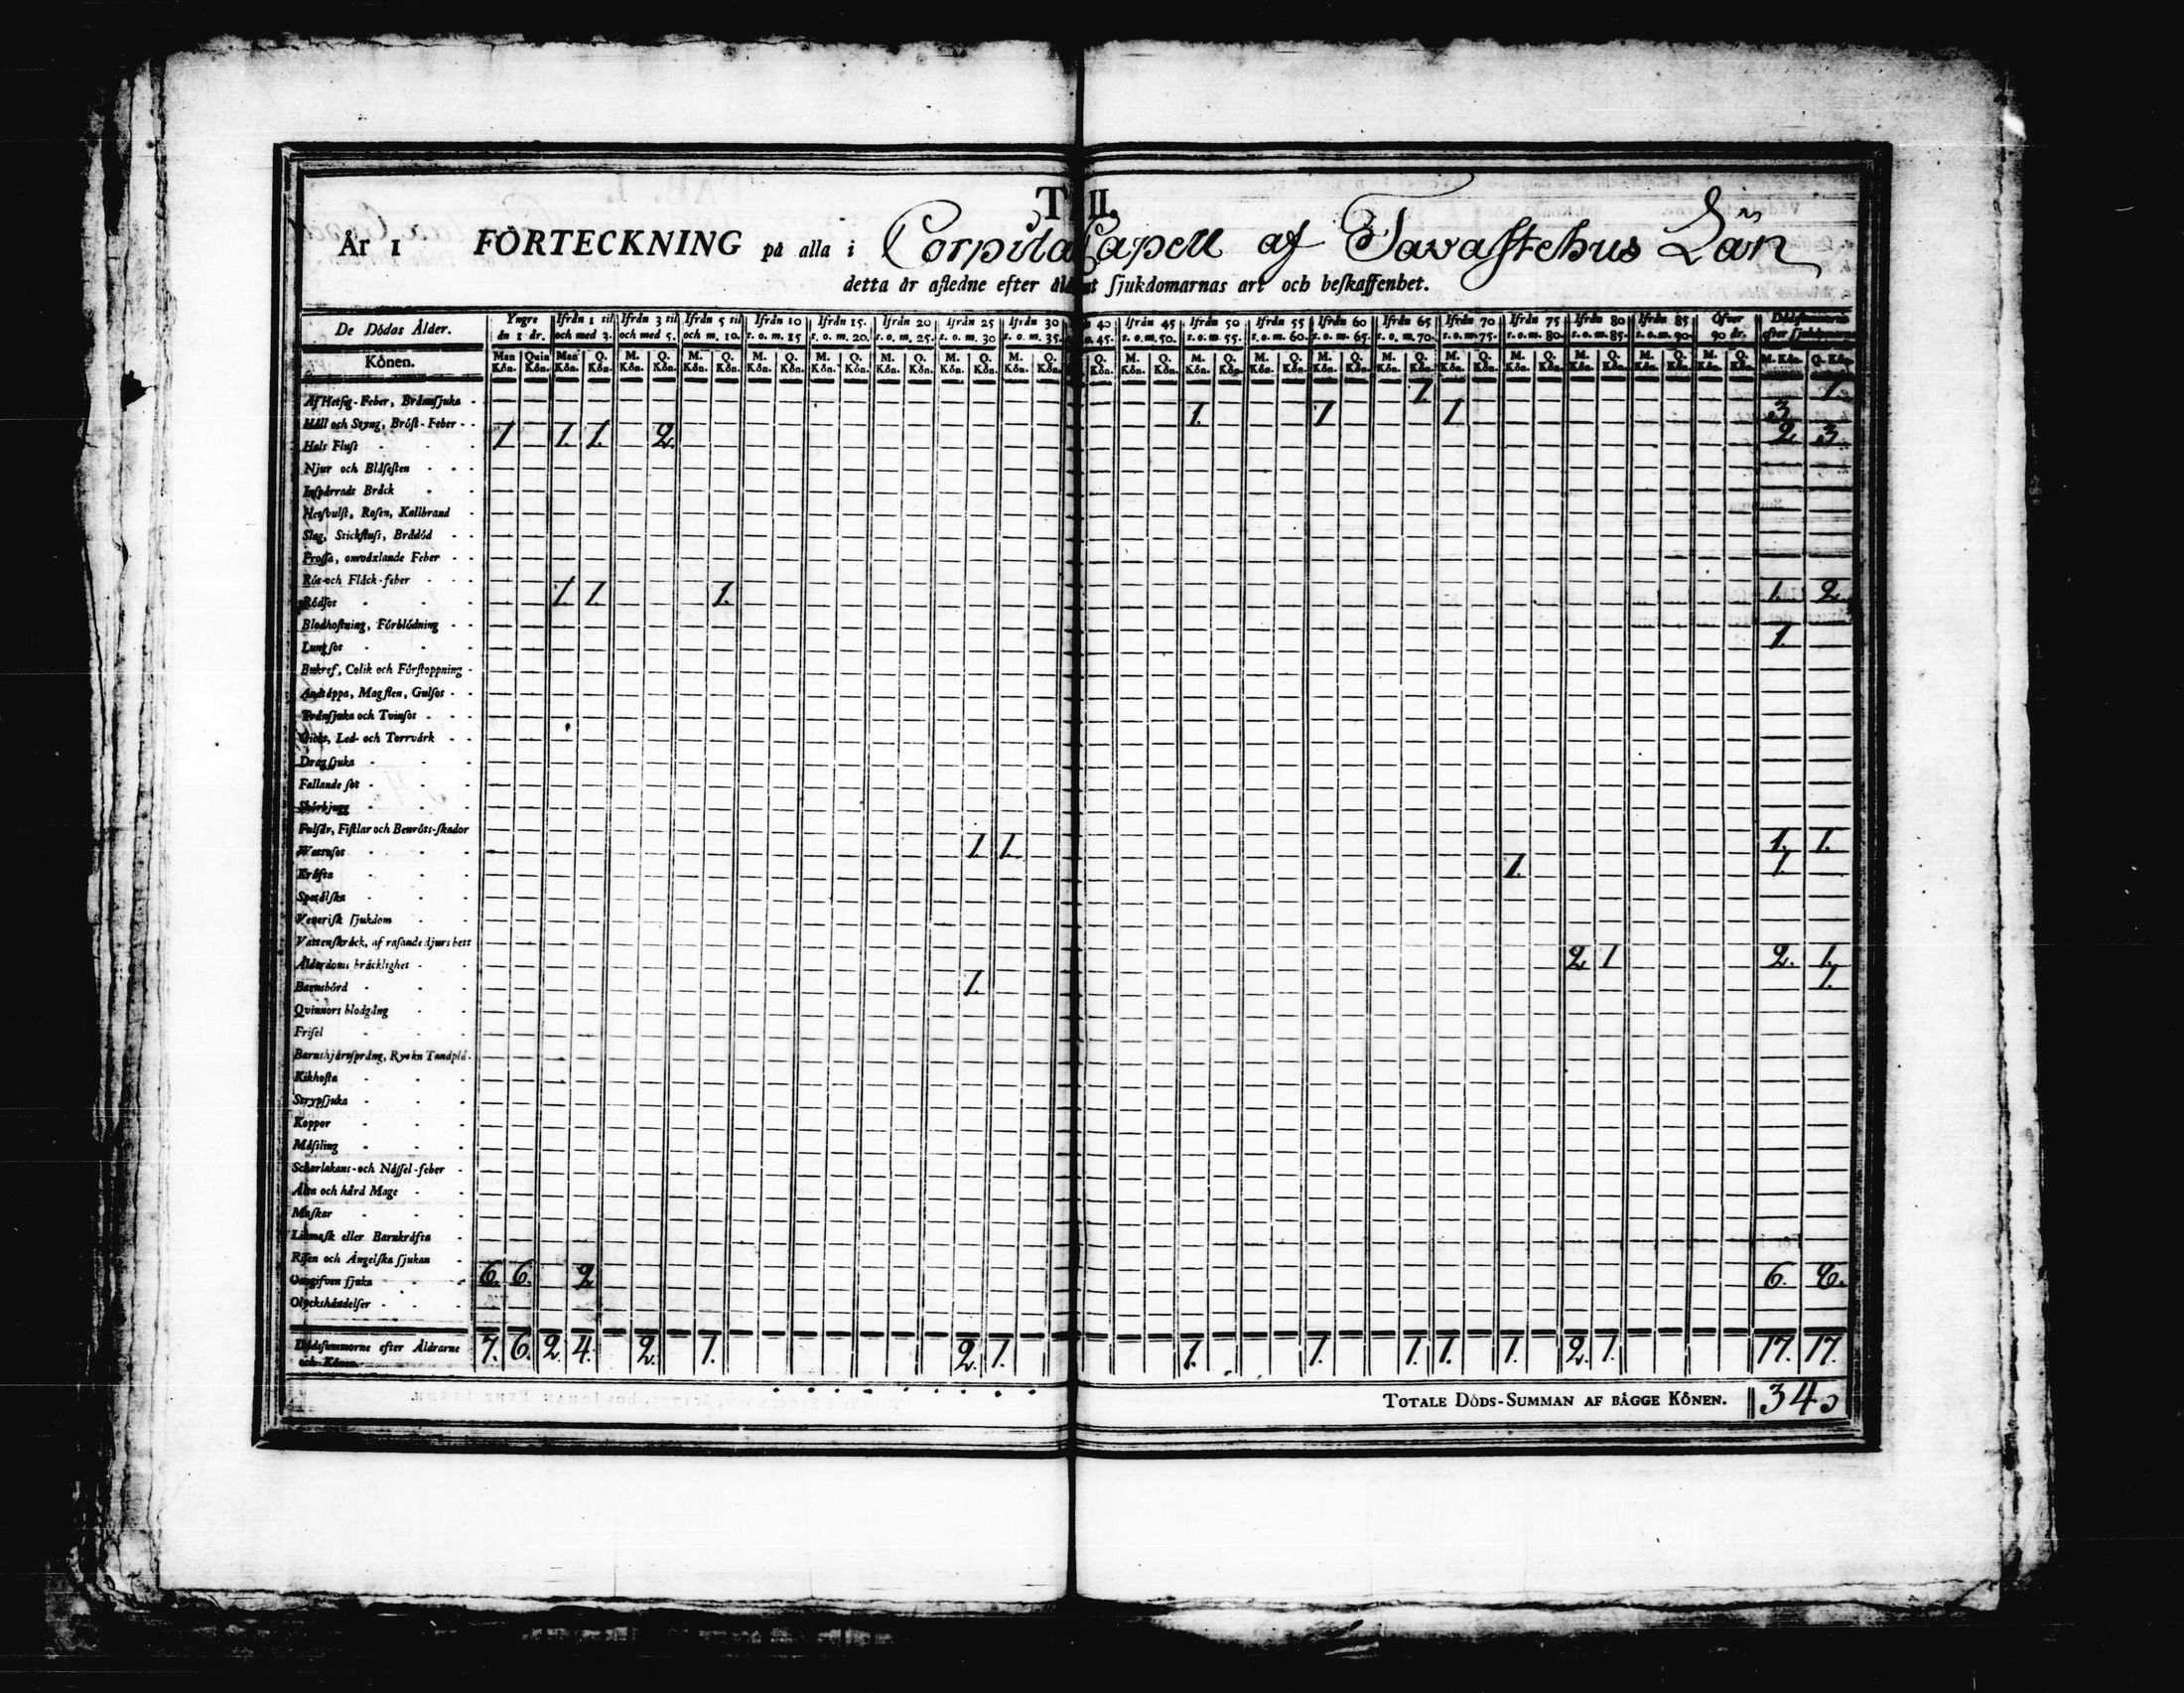 T II.
År 1 FÖRTECKNING på alla i Corpila Capell af Tavastehus Län
detta år afledne efter ålder sjukdomarnas art och beskaffenhet.
De Dödas Ålder. Yngre än 1 år. Ifrån 1 til och med 3. Ifrån 3 til och med 5. Ifrån 5 til och m. 10. Ifrån 10 t. o. m. 15 Ifrån 15. t. o. m. 20. Ifrån 20 t. o. m. 25. Ifrån 25 t. o. m. 30 Ifrån 30 t. o. m. 35. 40 45. Ifrån 45 t. o. m. 50. Ifrån 50 t. o. m. 55. Ifrån 55 t. o. m. 60. Ifrån 60 t. o. m. 65. Ifrån 65 t. o. m. 70. Ifrån 70 t. o. m. 75. Ifrån 75 t. o. m. 80. Ifrån 80 t. o. m. 85. Ifrån 85 t. o. m. 90. Öfver 90 år. Dödssummorne efter sjukdomarne
Könen. Man Kön. Quin Kön. Man Kön. Q. Kön. M. Kön. Q. Kön. M. Kön. Q. Kön. M. Kön. Q. Kön. M. Kön. Q. Kön. M. Kön. Q. Kön. M. Kön. Q. Kön. M. Kön. Q. Kön. Q. Kön. M. Kön. Q. Kön. M. Kön. Q. Kön. M. Kön. Q. Kön. M. Kön. Q. Kön. M. Kön. Q. Kön. M. Kön. Q. Kön. M. Kön. Q. Kön. M. Kön. Q. Kön. M. Kön. Q. Kön. M. Kön. Q. Kön. M. Kön. Q. Kön.
Af Hetsig-Feber, Brännsjuka 1 1.
Håll och Styng, Bröst-Feber 1. 1 1 3
Hals Fluss 1 1. 1. 2. 2 3.
Njur och Blåsesten
Inspärrads Bråck
Hetsvulst, Rosen, Kallbrand
Slag, Stickfluss, Brådöd
Frossa, omväxlande Feber
Röt-och Fläck-feber
Rödsot 1. 1. 1. 1. 2.
Blodhostning, Förblödning
Lungsot 1.
Bukref, Colik och Förstoppning
Andtäppa, Magsten, Gulsot
Tvånsjuka och Tvinsot
Gicht, Led- och Torrvärk
Dragsjuka
Fallande sot
Skörbjugg
Fulsår, Fistlar och Benröts-skador
Wattusot 1. 1. 1. 1.
Kräfta 1. 1.
Spetälska
Venerisk sjukdom
Vattenskräck, af rasande djurs bett
Ålderdoms bräcklighet 2 1 2. 1.
Barnsbörd 1. 1.
Qvinnors blodgång
Frisel
Barnshjärtsprång, Ryck Tandplå.
Kikhosta
Strypsjuka
Koppor
Mässling
Scharlakans-och Nässel-feber
Älta och hård Mage
Maskar
Likmask eller Barnkräfta
Risen och Ängelska sjukan
Oangifven sjuka 6. 6. 2 6. 8.
Olyckshändelser
Dödssummorne efter Åldrarne och Könen. 7. 6. 2 4. 2. 1. 2. 1. 1. 1. 1. 1. 1. 2. 1. 17. 17.
TOTALE DÖDS-SUMMAN AF BÄGGE KÖNEN. 34.